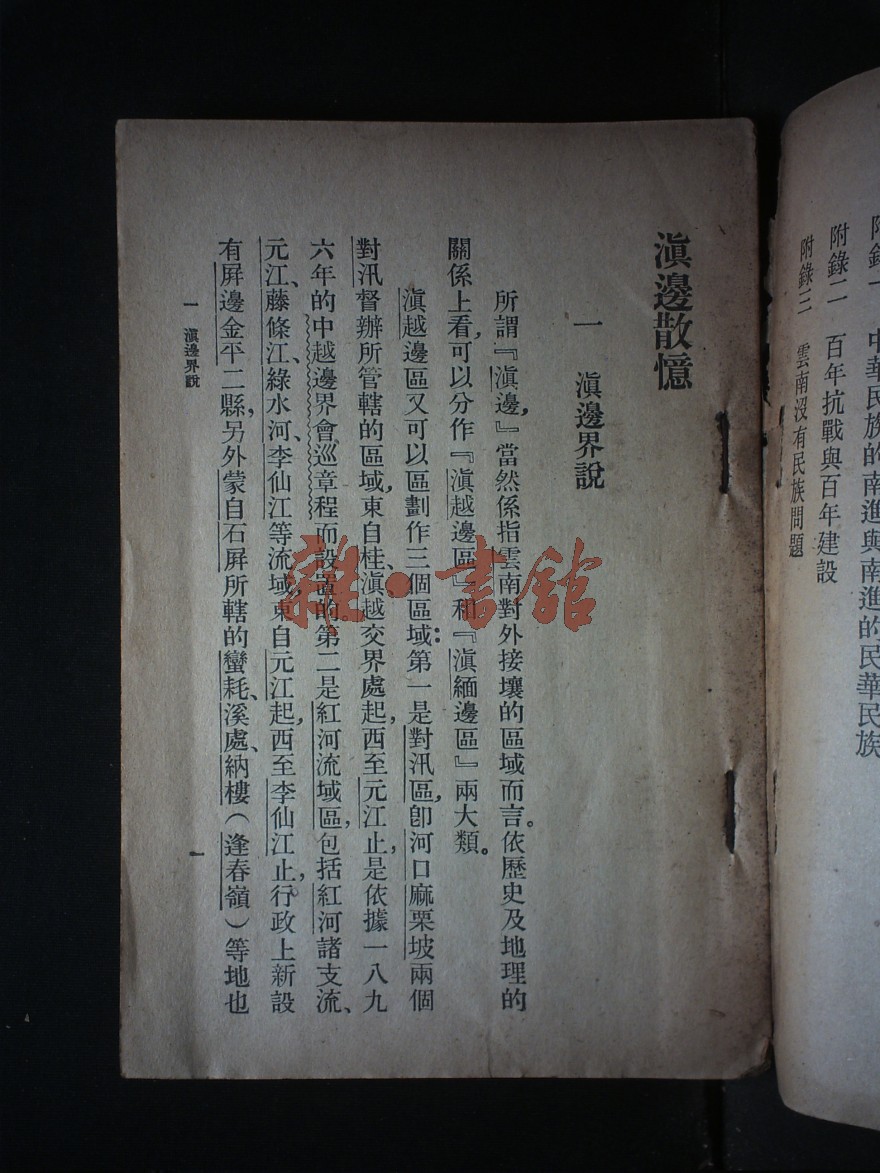 附錄一 中華民族的南進與南進的民華民族
附錄二 百年抗戰與百年建設
附錄三 雲南沒有民族問題
滇邊散憶
一 滇邊界說
所謂『滇邊』當然係指雲南對外接壤的區域而言。依歷史及地理的
關係上看，可以分作『滇越邊區』和『滇緬邊區』兩大類。
滇越邊區又可以區劃作三個區域：第一是對汛區，卽河口麻栗坡兩個
對汛督辦所管轄的區域，東自桂、滇越交界處起，西至元江止，是依據一八九
六年的中越邊界會巡章程而設置的。第二是紅河流域區，包括紅河諸支流、
元江、藤條江、綠水河、李仙江等流域，東自元江起，西至李仙江止，行政上新設
有屏邊金平二縣，另外蒙自石屏所轄的蠻耗、溪處、納樓（逢春嶺）等地也
一 滇邊界說
一
雜·書館